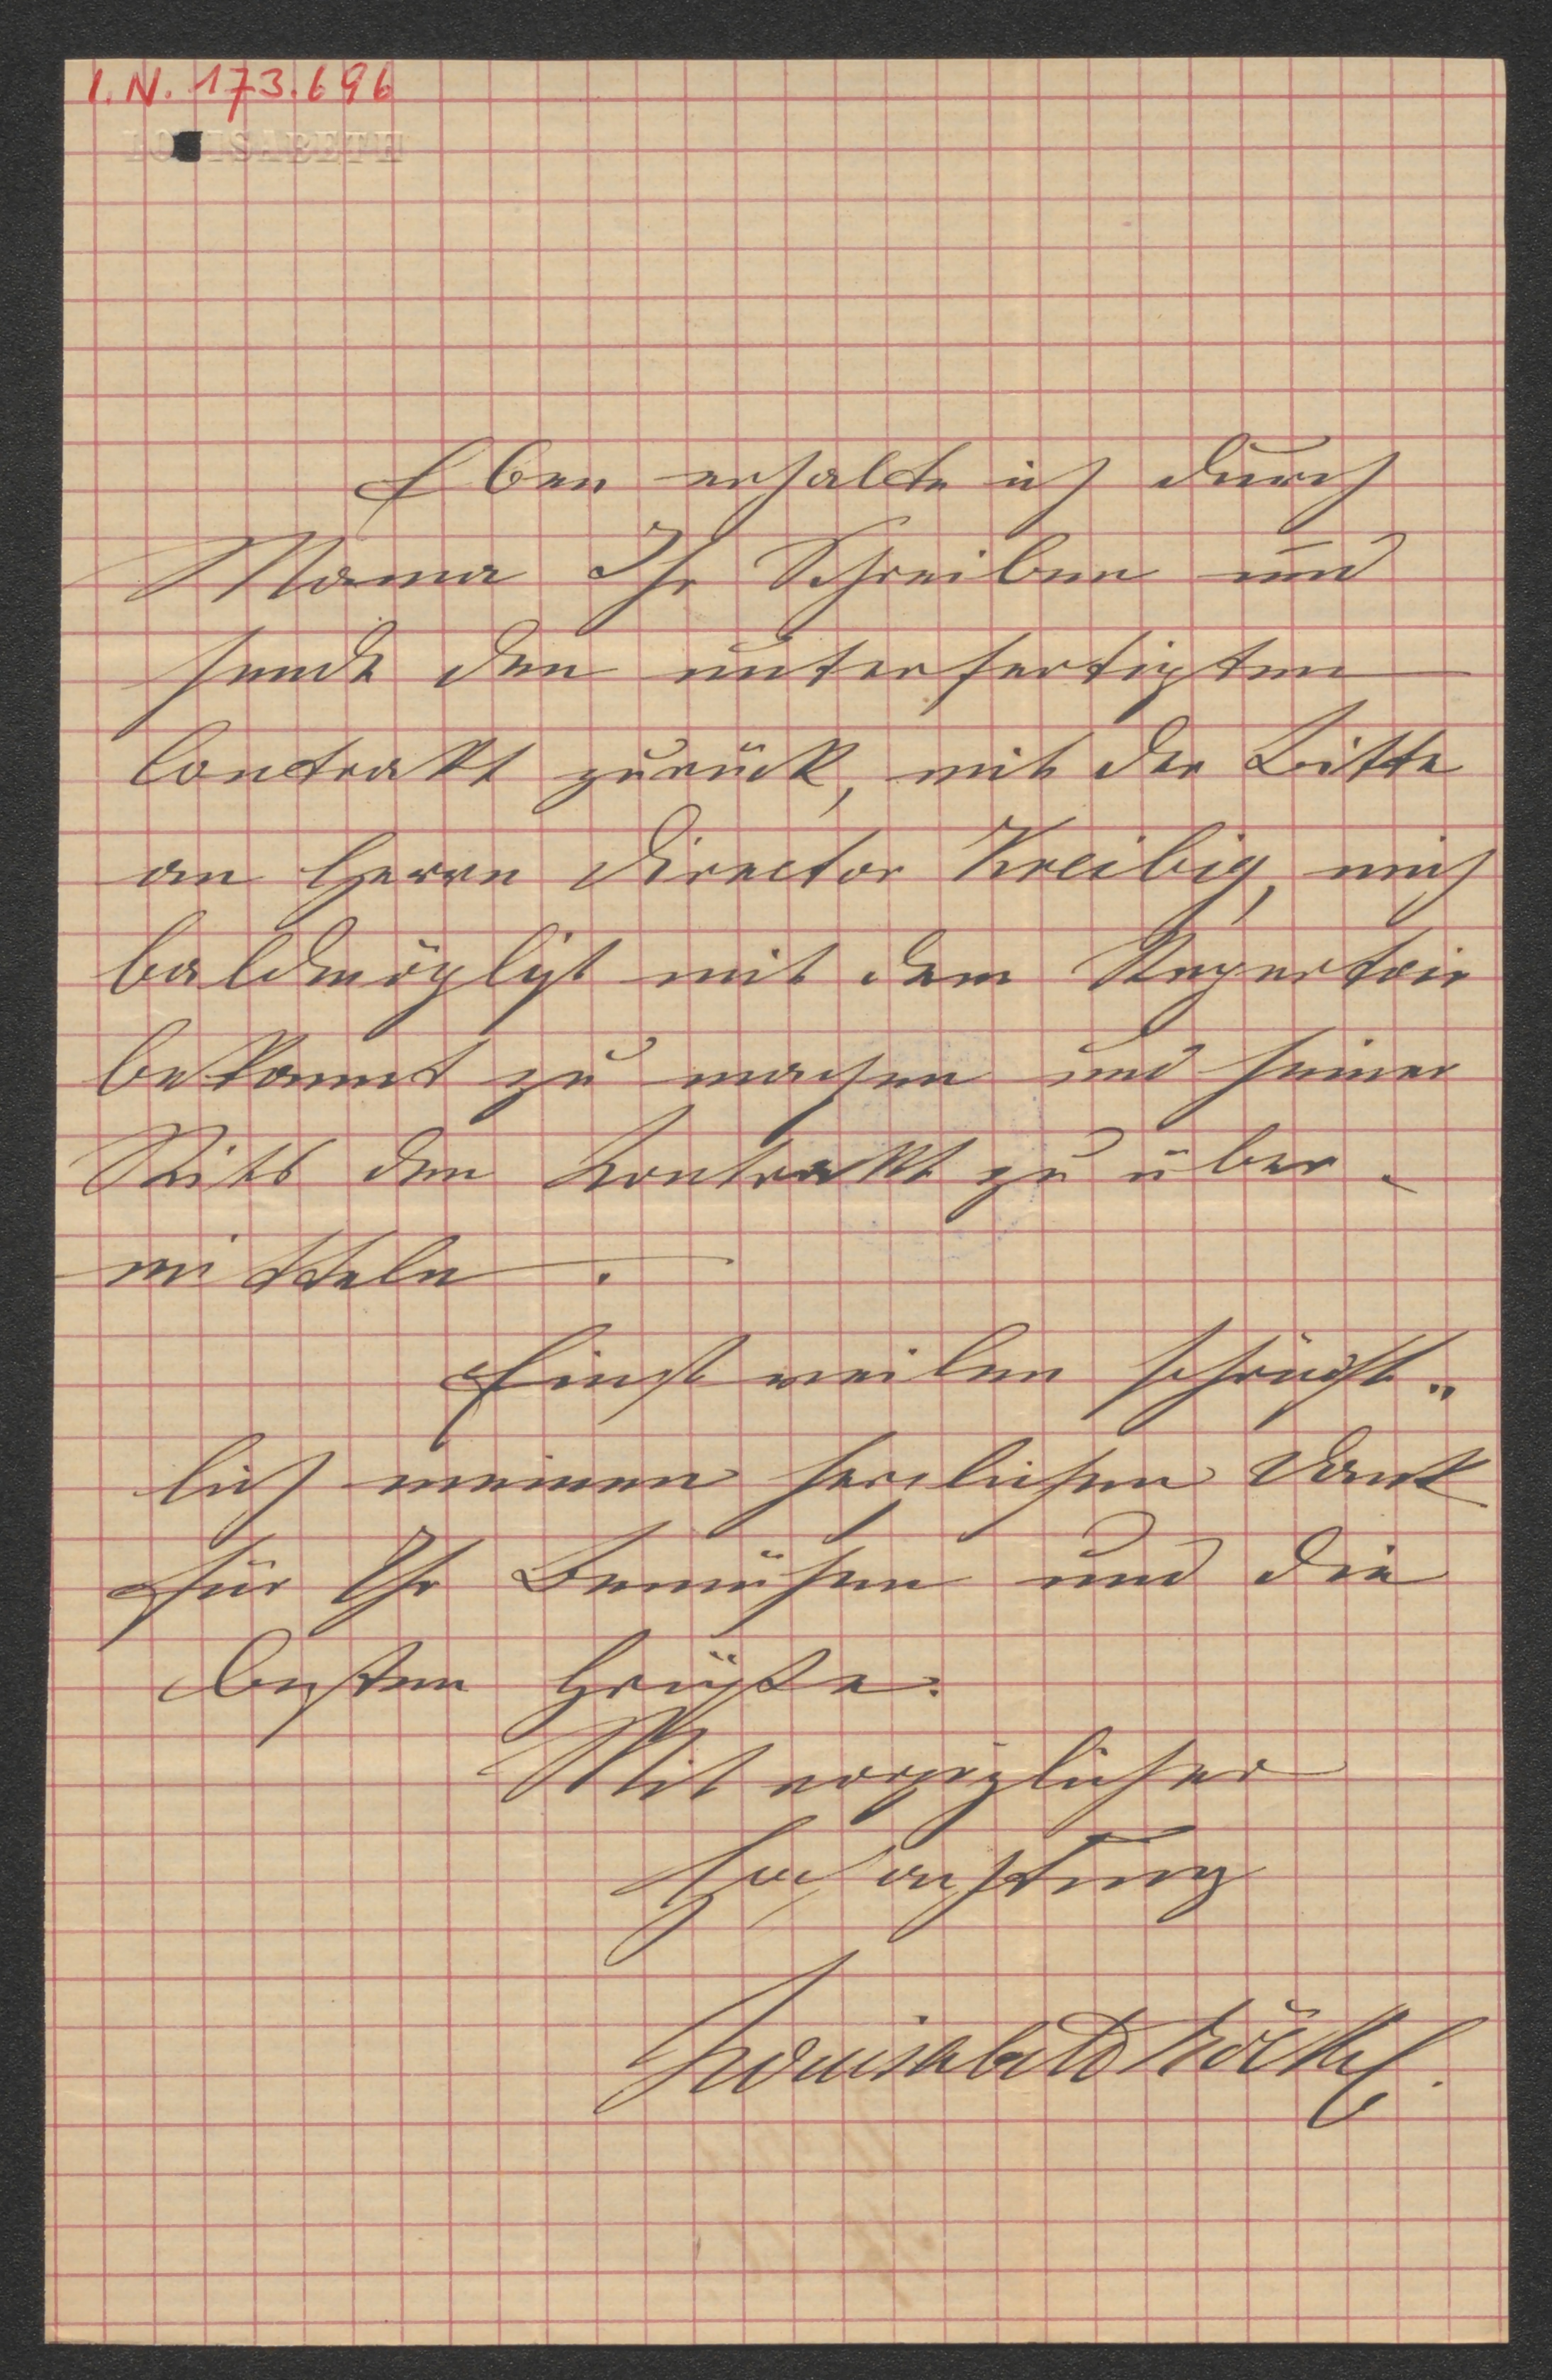 I.N. 173.696
LOUISABETH
Eben erhalte ich durch
Mama Ihr Schreiben und
sende den unterfertigten
Contrakt zurück, mit der Bitte
an Herrn Director Kreibig, mich
baldmöglichst mit dem Repertoir
bekannt zu machen und seiner
Seits den Kontrakt zu über-
mitteln.
Einstweilen schrift„
lich meinen herzlichen Dank
für Ihr Bemühen und die
besten Grüße.
Mit vorzüglicher
Hochachtung
Louisabeth Röckel.